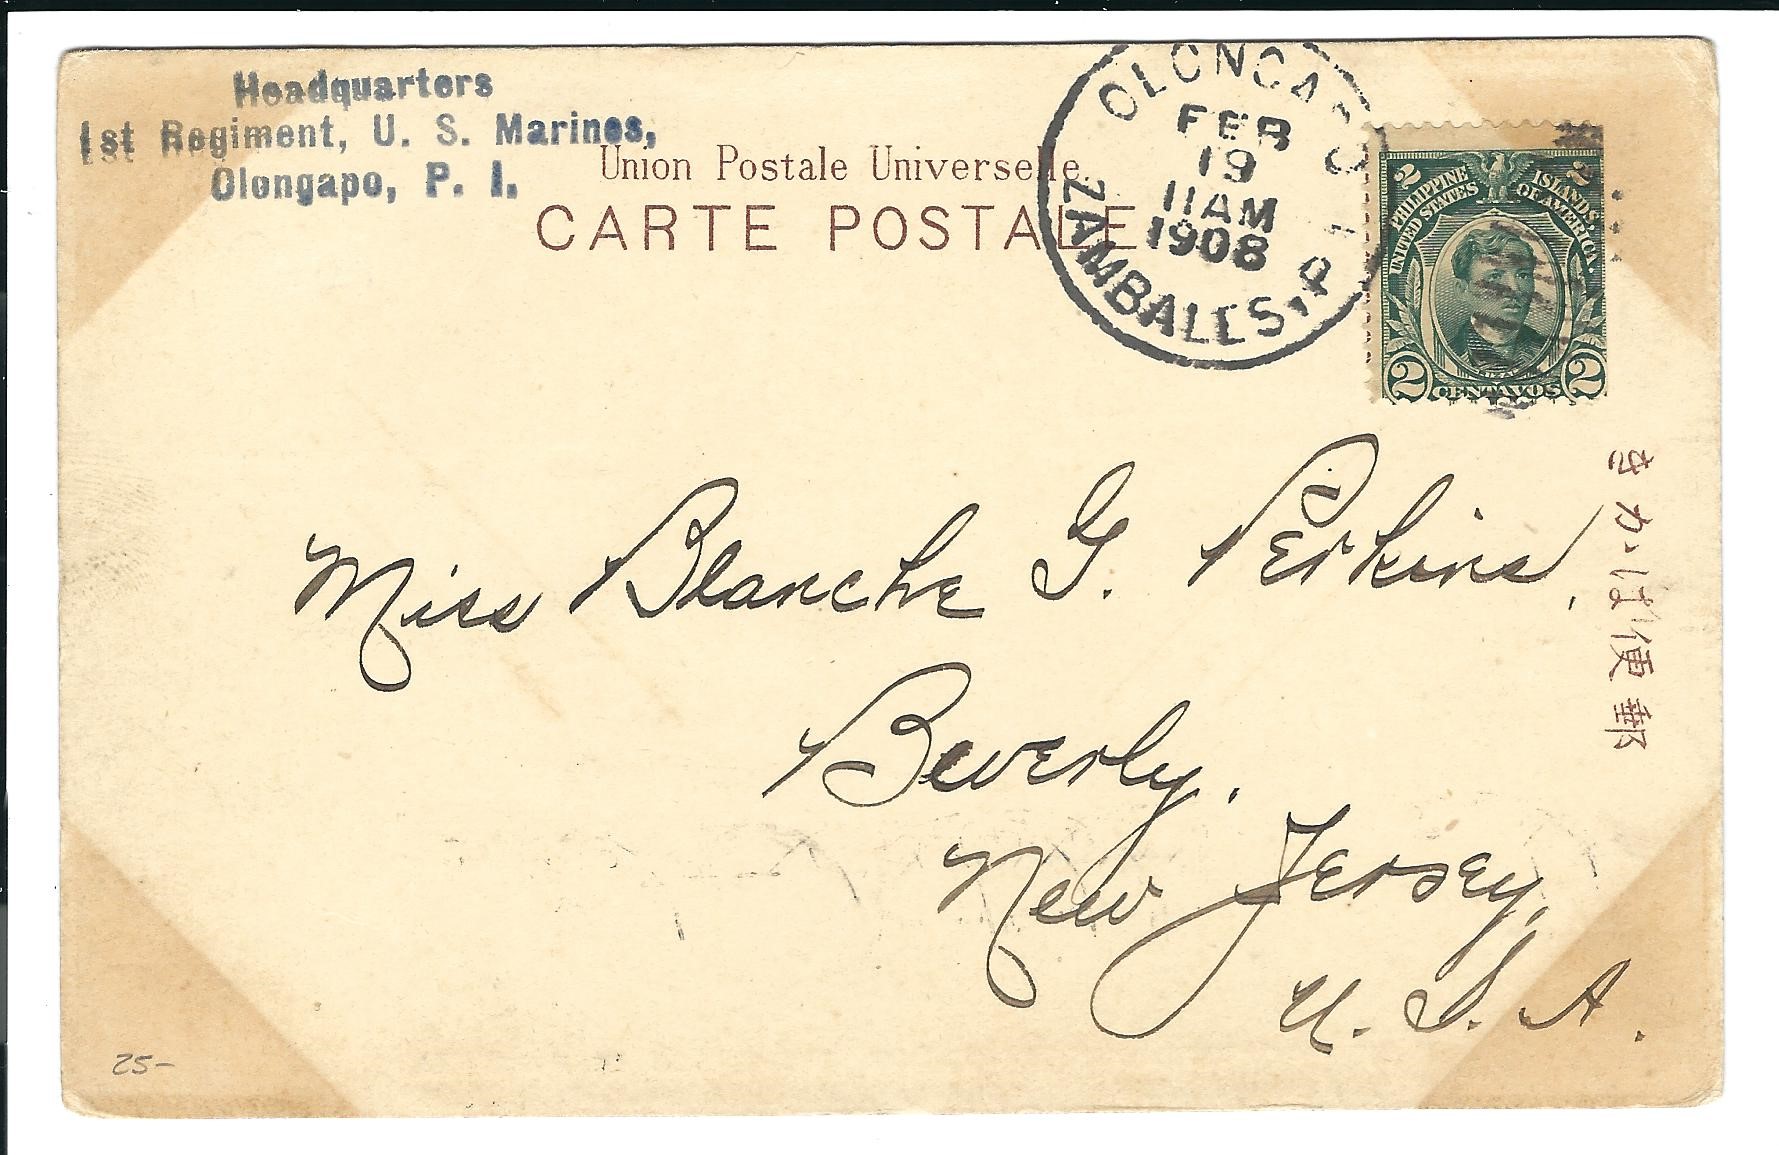 Headquarters
1st Regiment, U. S. Marines,
Olongapo, P. I.
Union Postale Universelle
CARTE POSTALE
OLONGAPO
ZAMBALES, P. I.
FEB
19
11AM
1908
2 2
PHILIPPINE ISLANDS,
UNITED STATES OF AMERICA
2 CENTAVOS 2
きかは便郵
Miss Blanche G. Perkins,
Beverly.
New Jersey,
U. S. A.
25-